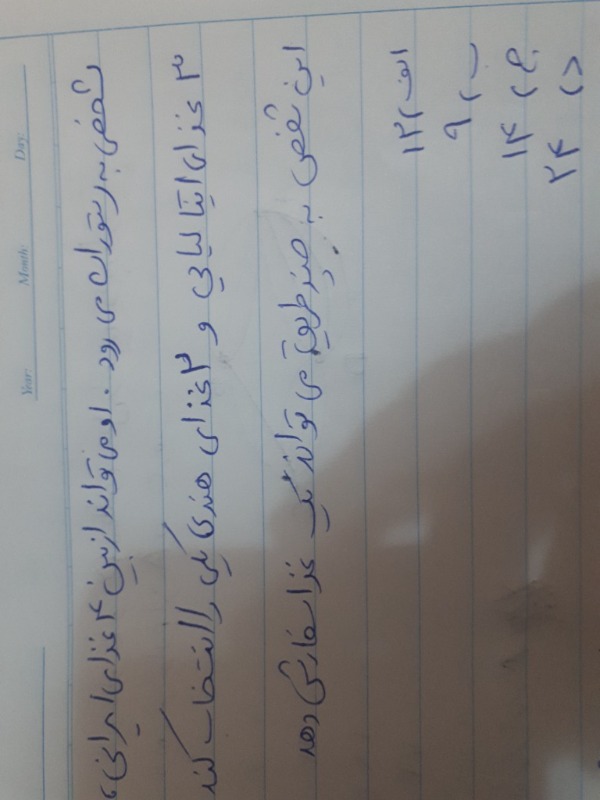 Year: Month: Day:
شخصی به رستوران می رود. او می تواند از بین ۴ غذای ایرانی،
۳ غذای ایتالیایی و ۲ غذای هندی یکی را انتخاب کند
این شخص به چند طریق می تواند یک غذا سفارش دهد
الف) ۱۲
ب) ۹
ج) ۱۴
د) ۲۴